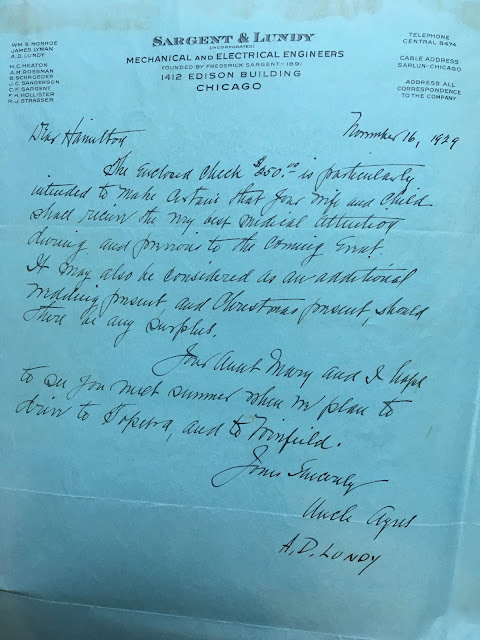 SARGENT & LUNDY
(INCORPORATED)
MECHANICAL AND ELECTRICAL ENGINEERS
FOUNDED BY FREDERICK SARGENT-1891
1412 EDISON BUILDING
CHICAGO
WM. S. MONROE
JAMES LYMAN
A. D. LUNDY
H. C. HEATON
A. M. ROSSMAN
B. SCHROEDER
J. C. SANDERSON
C. F. SARGENT
F. H. HOLLISTER
R. J. STRASSER
TELEPHONE
CENTRAL 8474
CABLE ADDRESS
SARLUN-CHICAGO
ADDRESS ALL
CORRESPONDENCE
TO THE COMPANY
November 16, 1929
Dear Hamilton
The Enclosed Check $250.00 is particularly
intended to make Certain that your wife and Child
shall receive the very best medical attention
during and previous to the Coming Event.
It may also be considered as an additional
wedding present and Christmas present, should
there be any surplus.
Your Aunt Mary and I hope
to see you next summer when we plan to
drive to Topeka, and to Winfield.
Yours Sincerely
Uncle Ayres
A. D. LUNDY